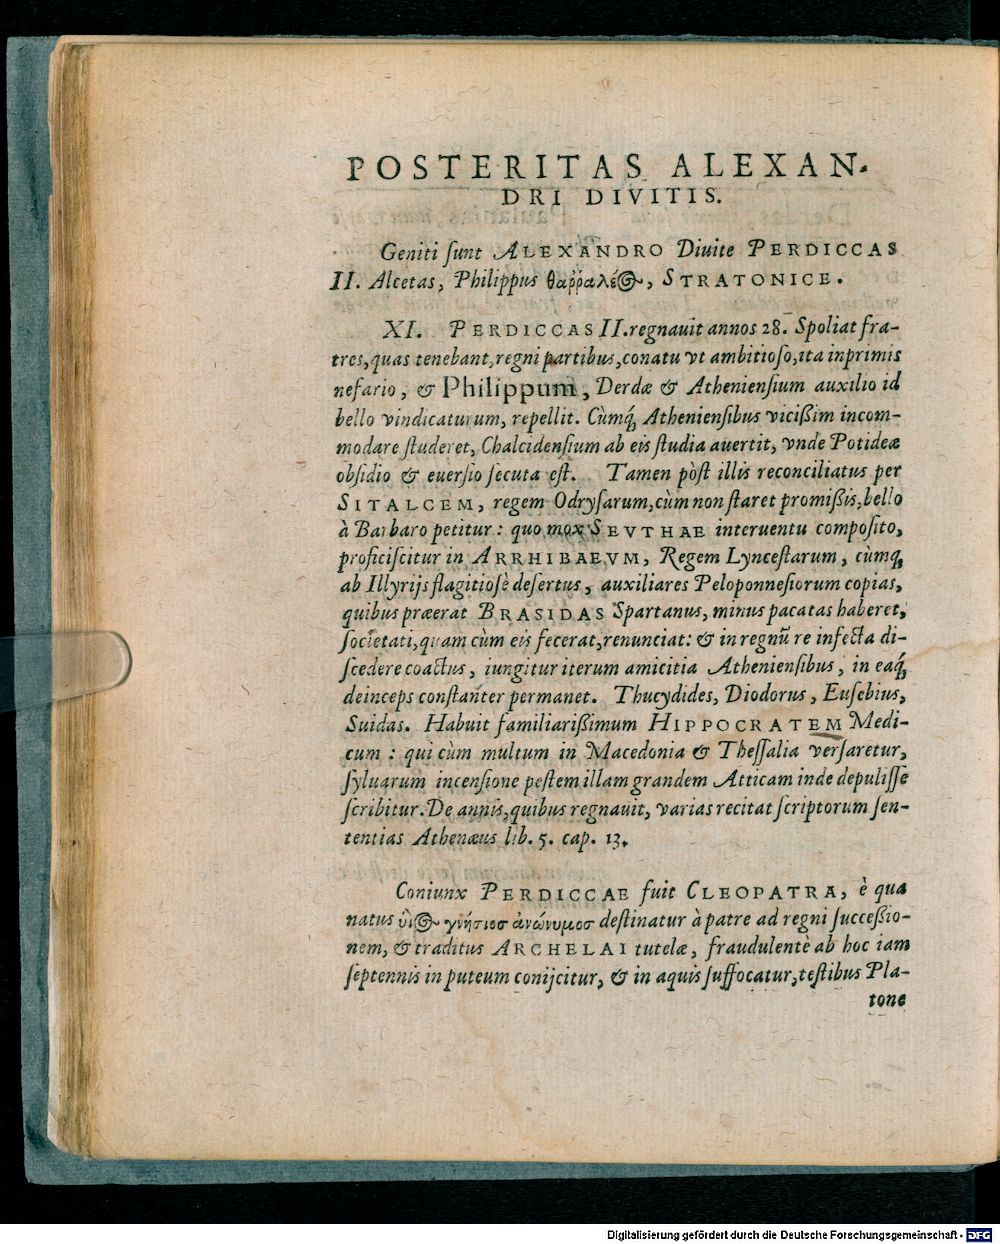 POSTERITAS ALEXAN-
DRI DIVITIS.
Geniti ſunt ALEXANDRO Diuite PERDICCAS
II. Alcetas, Philippus θαῤῥαλέος, STRATONICE.
XI. PERDICCAS II. regnauit annos 28. Spoliat fra-
tres, quas tenebant, regni partibus, conatu vt ambitioſo, ita inprimis
nefario, & Philippum, Derdæ & Athenienſium auxilio id
bello vindicaturum, repellit. Cùmq́; Athenienſibus vicißim incom-
modare ſtuderet, Chalcidenſium ab eis ſtudia auertit, vnde Potideæ
obſidio & euerſio ſecuta eſt. Tamen pòſt illis reconciliatus per
SITALCEM, regem Odryſarum, cùm non ſtaret promißis, bello
à Barbaro petitur: quo mox SEVTHAE interuentu compoſito,
proficiſcitur in ARRHIBAEVM, Regem Lynceſtarum, cùmq́;
ab Illyrijs flagitioſè deſertus, auxiliares Peloponneſiorum copias,
quibus præerat BRASIDAS Spartanus, minus pacatas haberet,
ſocietati, quam cùm eis fecerat, renunciat: & in regnũ re infecta di-
ſcedere coactus, iungitur iterum amicitia Athenienſibus, in eaq́;
deinceps conſtanter permanet. Thucydides, Diodorus, Euſebius,
Suidas. Habuit familiarißimum HIPPOCRATEM Medi-
cum: qui cùm multum in Macedonia & Theſſalia verſaretur,
ſyluarum incenſione peſtem illam grandem Atticam inde depuliſſe
ſcribitur. De annis, quibus regnauit, varias recitat ſcriptorum ſen-
tentias Athenæus lib. 5. cap. 13.
Coniunx PERDICCAE fuit CLEOPATRA, è qua
natus ὑιὸς γνήσιοσ ἀνώνυμοσ deſtinatur à patre ad regni ſucceßio-
nem, & traditus ARCHELAI tutelæ, fraudulentè ab hoc iam
ſeptennis in puteum conijcitur, & in aquis ſuffocatur, teſtibus Pla-
tone
Digitalisierung gefördert durch die Deutsche Forschungsgemeinschaft - DFG